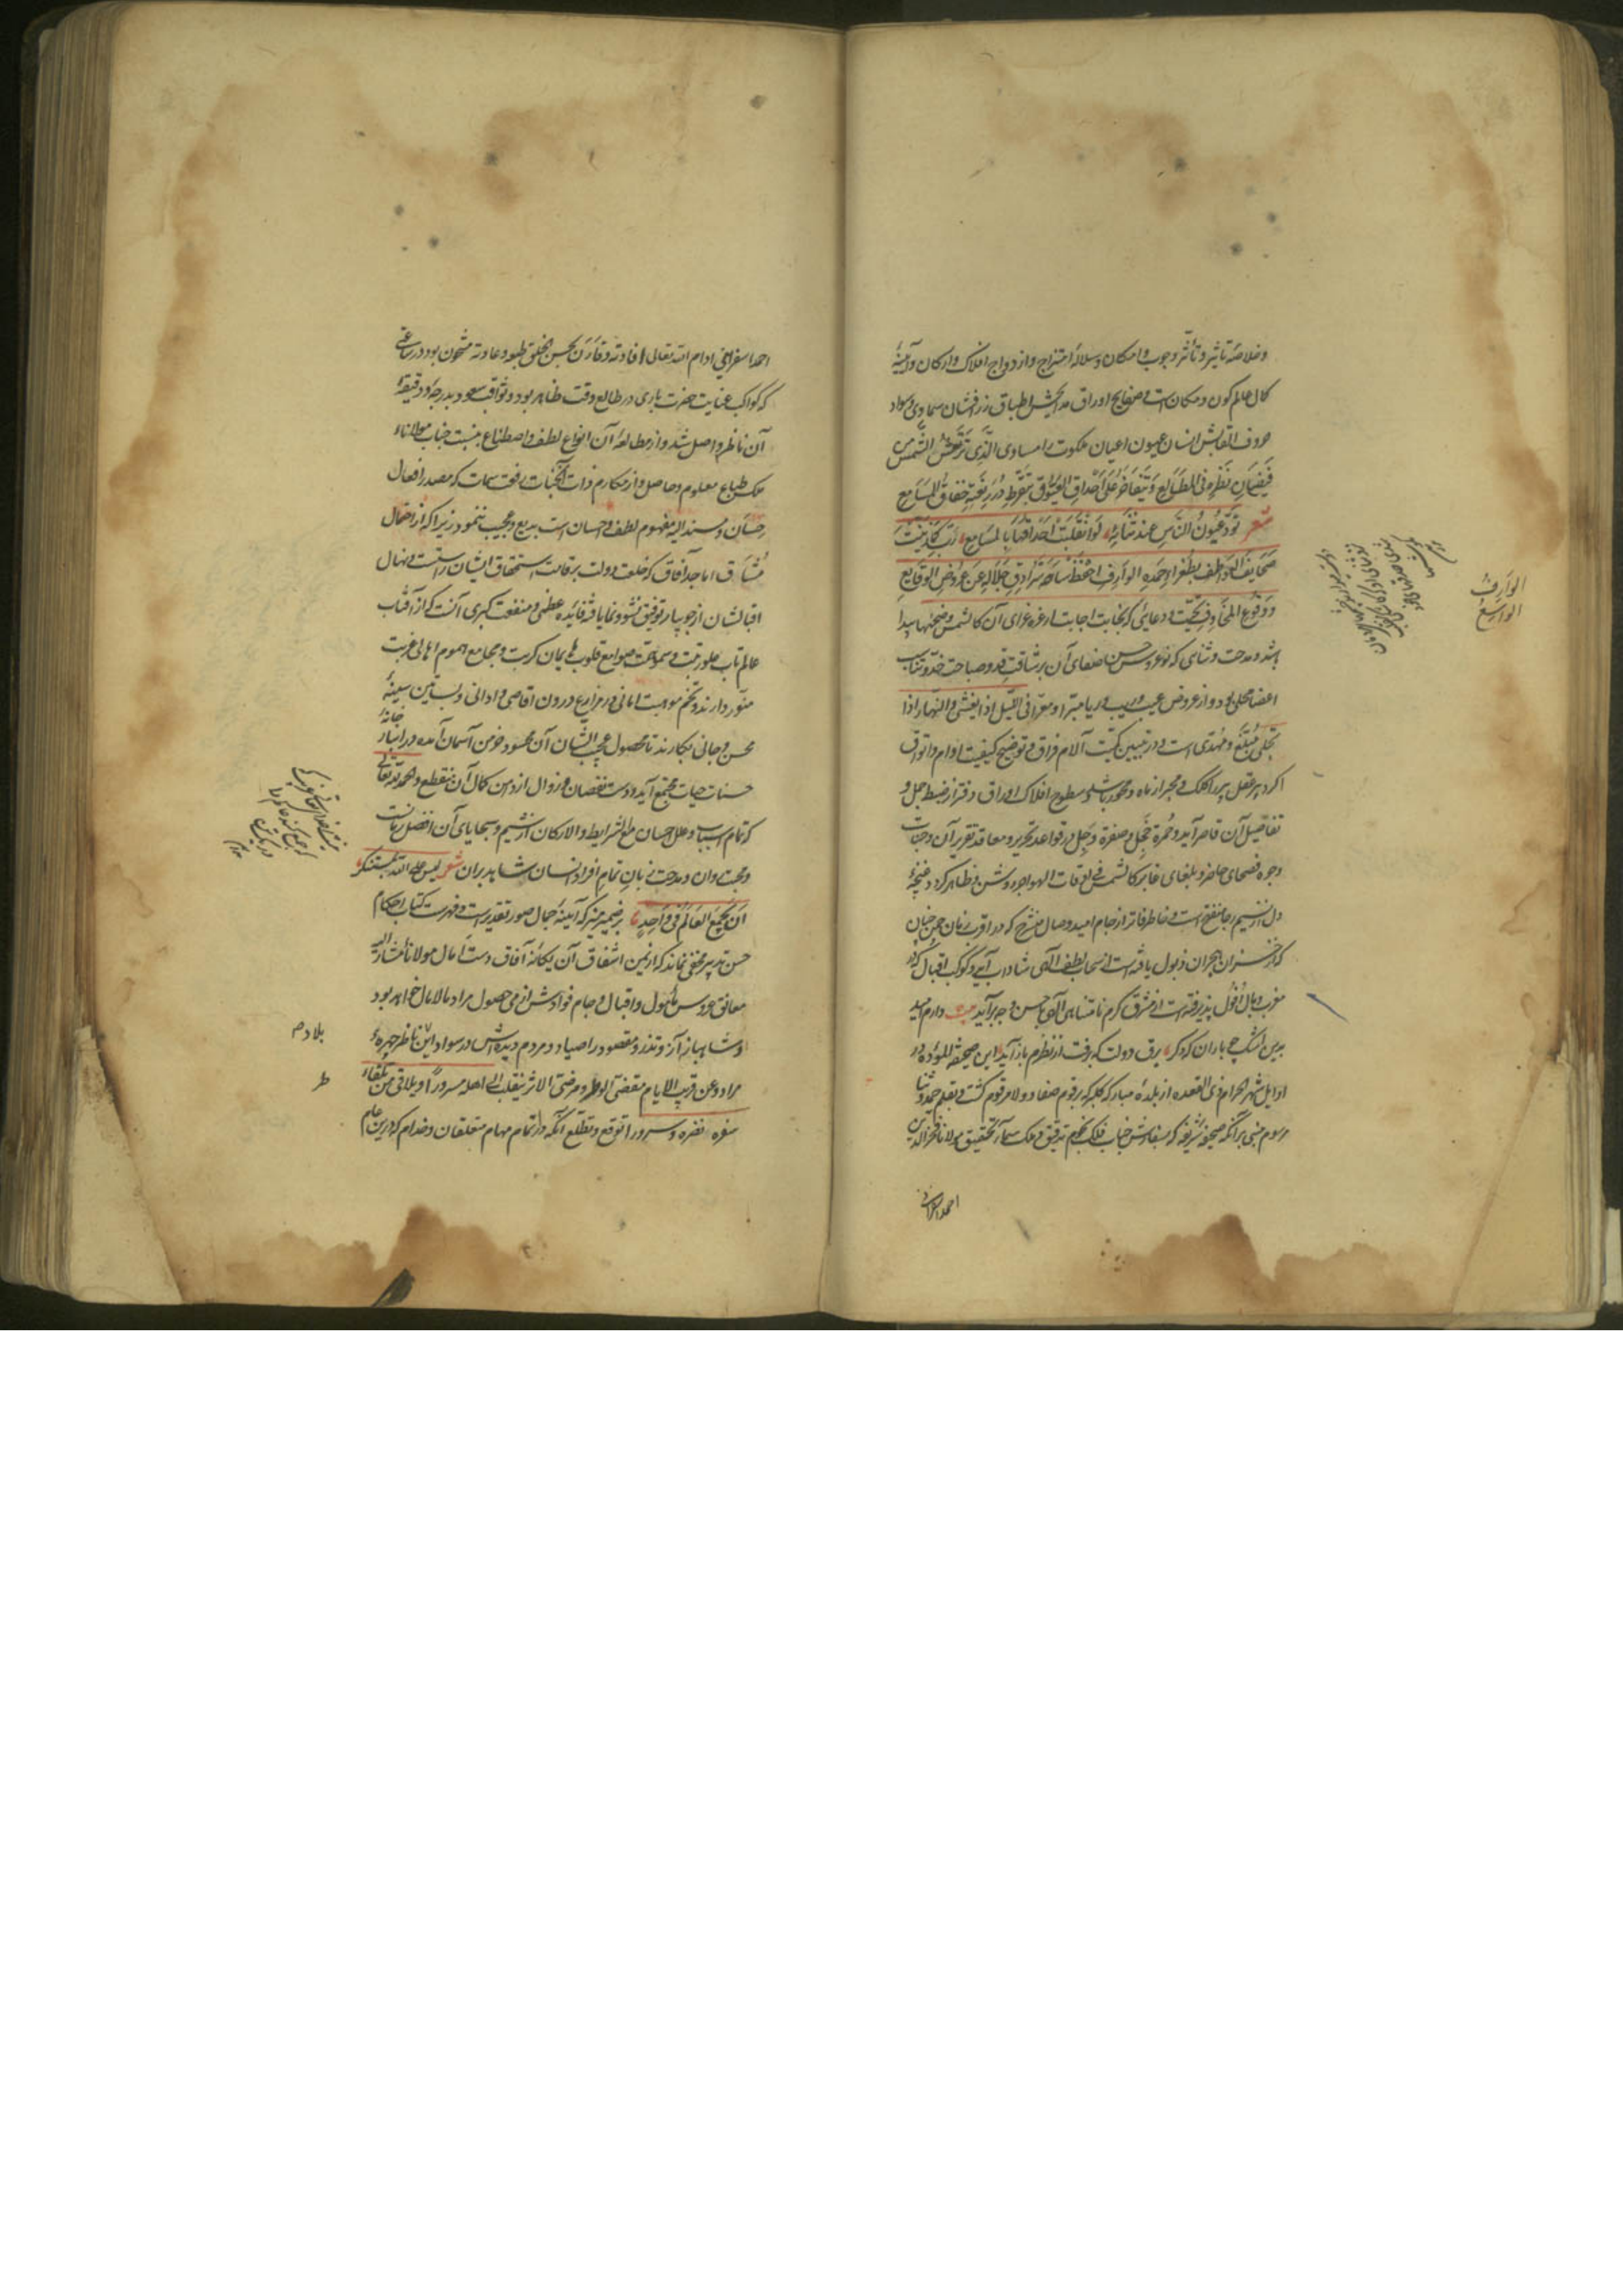 وخلاصه تاثیر و تأثر وجوب و امکان و سلاله امتزاج و ازدواج افلاک و ارکان و آیینه
کمال عالم کون و مکان است و صفایح اوراق مدایحش اطباق زرافشان سماوی و سواد
حروف القابش انسان عیون اعیان ملکوت را مساوی الذی ترتعش الشمس من
فیضان نظره فی المطالع و یتفاخر علی احداق العیوق بتقرط درر نعته خفاق المسامع
شعر تود عیون الناس عند ثنایه لو انقلبت احداقها بالمسامع رب کما زینت
صحایف العواطف بطغراء حمده الوارف احفظ ساحة سرادق جلاله عن عروض الوقایع
و وقوع المخاوف تحیت و دعایی که نجابت اجابت از غره غرای آن کالشمس وضحیها پیدا
باشد و مدحت و ثنای که نو عروس حسن صفای آن برشاقت قد و صباحت خد و تناسب
اعضا محلی بود و از عروض عیب و ریب و ریا مبرا و معرا فی اللیل اذا یغشی و النهار اذا
تجلی مبلغ و مهدی است و در تبیین کمیت آلام فراق و توضیح کیفیت اوام و اتواق
اگر دبیر عقل پیر را کلک محور از ماه و محور باشد و سطوح افلاک اوراق دفتر از ضبط جمل و
تفاصیل آن قاصر آید و حمرة خجل و صفرة وجل در قواعد تحریر و معاقد تقریر آن وجنات
وجوه فصحای حاضر و بلغای غابر کالشمس فی لعقات الهواجر روشن و ظاهر گردد غنچه
دل از نسیم رجا منفتح است و خاطر فاتر از جام امید وصال منشرح که در اقرب زمان چمن جنان
که از خزان هجران ذبول یافته است از سحاب لطف الهی شاداب آید و کوکب اقبال که در
مغرب وبال افول پذیرفته است از مشرق کرم نامتناهی الهی باحسن وجه برآید بیت دارم امید
بدین اشک چو باران که دگر برق دولت که برفت از نظرم باز آید این صحیفة المودة در
اوایل شهر الحرام ذی القعده از بلده مبارکه کلبرکه برقوم صفا و ولا مرقوم گشت و بقلم حمد و ثنا
مرسوم مبنی بر آنکه صحیفه شریفه که بسفارش جناب فلک نجوم تدقیق و ملک سماء تحقیق مولانا فخرالدین
احمد اسفراینی
الوارف
الواسع
احمد اسفراینی ادام الله تعالی افادته و قارن بحسن الخلق طبعه و عادته مشحون بود در ساعتی
که کواکب عنایت حضرت باری در طالع وقت ظاهر بود و ثواقب سعود بدرجه و دقیقه
آن ناظر واصل شد و از مطالعه آن انواع لطف و اصطناع بنسبت جناب مولاناء
ملک طباع معلوم و حاصل و از مکارم ذات آنجناب رفعت سمات که مصدر افعال
حسان و مسند الیه مفهوم لطف و احسان است بدیع و عجیب ننمود زیرا که از افضال
مشارق اماجد آفاق که خلعت دولت بر قامت استحقاق ایشان راست است و نهال
اقبالشان از جویبار توفیق نشو و نما یافته فایده عظمی و منفعت کبری آنست که از آفتاب
عالم تاب علو رتبت و سمو همت صوامع قلوب هایمان کربت و مجامع هموم اهالی غربت
منور دارند و تخم موهبت امانی در مزارع درون اقاصی و ادانی و بساتین سینه
محسن و جانی بکارند تا محصول عجیب الشان آن محسود خرمن آسمان آمده در انبار خانه
حسنات حیات مجتمع آید و دست نقصان و زوال از دامن کمال آن منقطع والحمد لله تعالی
که تمام اسباب و علل احسان مع الشرایط و الارکان از شیم و سجایای آن افضل زمانست
و محبت وان و مدحت زبان تمام افراد انسان شاهد بران شعر لیس علی الله بمستنکر
ان یجمع العالم فی واحد بر ضمیر منیر که آیینه جمال صور تقدیر است و فهرست کتاب احکام
حسن تدبیر مخفی نماند که از یمن اشفاق آن یگانه آفاق دست آمال مولانا مشار الیه
معانق عروس مامول و اقبال و جام فوادش از می حصول مراد مالامال خواهد بود
و شاهباز آز و تذرو مقصود را صیاد و مردم دیده اش در سواد این بلاد ناظر چهره
مراد و عن قریب الایام مقضی الوطر و مرضی الاثر ینقلب الی اهله مسرورا و یلاقی من تلقاء
سفره نضرة و سرورا توقع و تطلع آنکه در اتمام مهام متعلقان و خدام که درین عام
بلاد م
ط